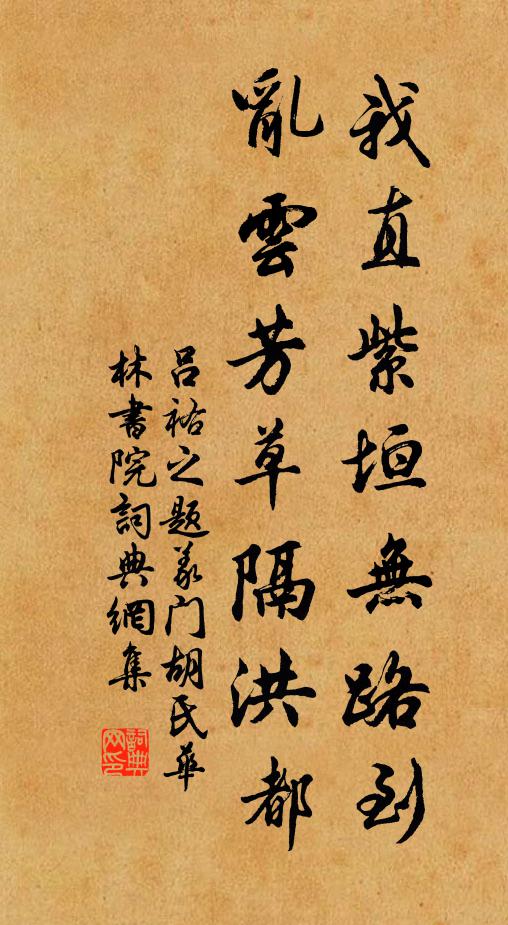 我直紫垣無路到
亂雲芳草隔洪都
呂裕之題義门胡氏華
林書院詞典網集
詞典网印